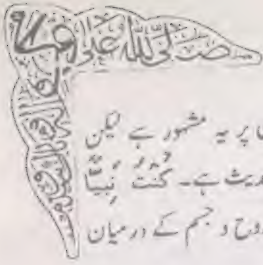 صلی اللہ علی
ں پر یہ مشہور ہے لیکن
دیث ہے۔ کُنْتُ نَبِیًّا
روح و جسم کے درمیان